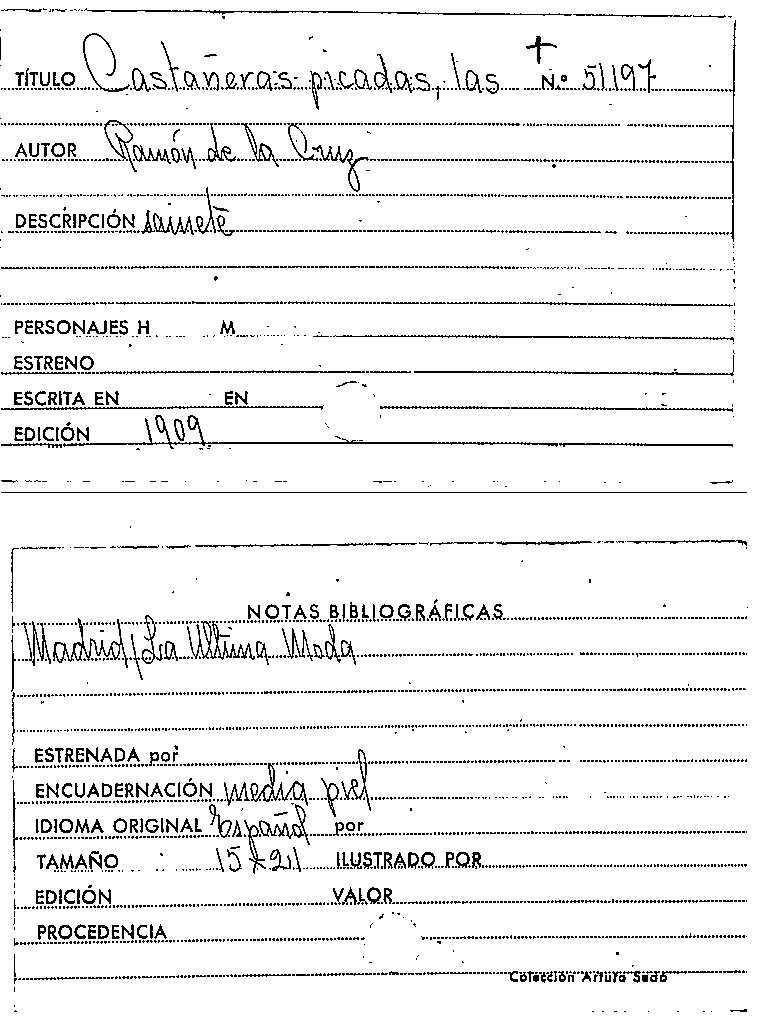 TÍTULO Castañeras picadas, las N.º 51197
AUTOR Ramón de la Cruz
DESCRIPCIÓN sainete
PERSONAJES H M
ESTRENO
ESCRITA EN EN
EDICIÓN 1909
NOTAS BIBLIOGRÁFICAS
Madrid/La Ultima Moda
ESTRENADA por
ENCUADERNACIÓN media piel
IDIOMA ORIGINAL Español por
TAMAÑO 15x21 ILUSTRADO POR
EDICIÓN VALOR
PROCEDENCIA
Colección Arturo Sedó